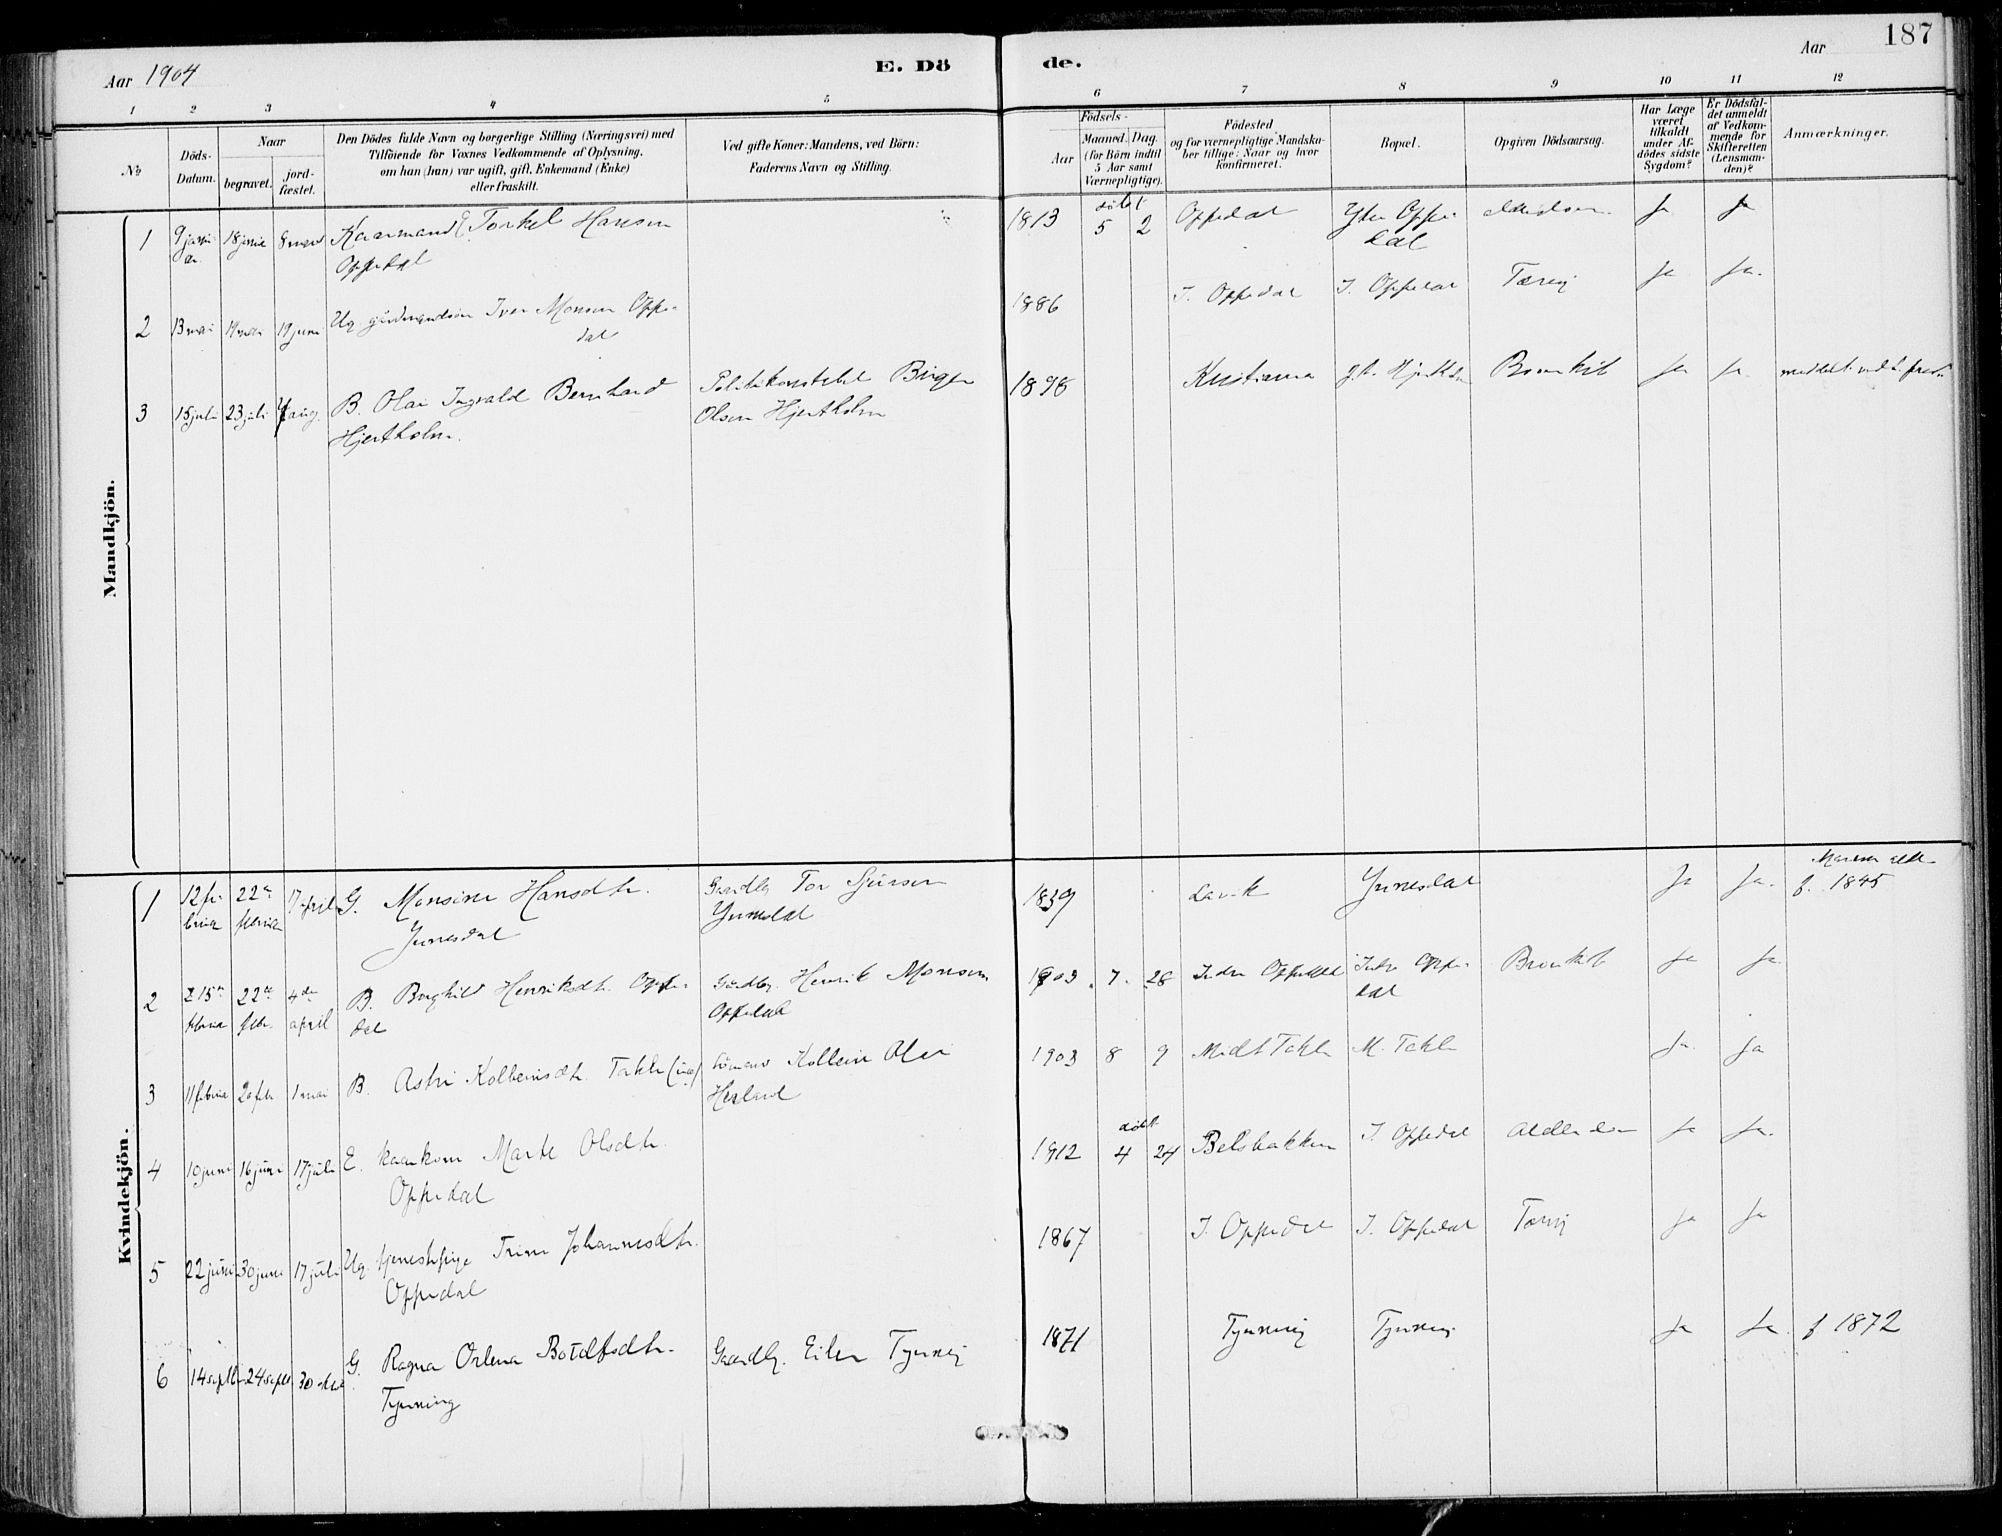 Aar 1904
E. Dö
de.
Aar
187
1 2 3 4 5 6 7 8 9 10 11 12
No
Döds-
Datum.
Naar
begravet.
jord-
fæstet.
Den Dödes fulde Navn og borgerlige Stilling (Næringsvei) med
Tilföiende for Voxnes Vedkommende af Oplysning,
om han (hun) var ugift, gift, Enkemand (Enke)
eller fraskilt.
Ved gifte Koner: Mandens, ved Börn:
Faderens Navn og Stilling.
Födsels-
Aar
Maaned.
Dag.
(for Börn indtil
5 Aar samt
Værnepligtige).
Födested
og for værnepligtige Mandska-
ber tillige: Naar og hvor
konfirmeret.
Bopæl.
Opgiven Dödsaarsag.
Har Læge
været
tilkaldt
under Af-
dödes sidste
Sygdom?
Er Dödsfal-
det anmeldt
af Vedkom-
mende for
Skifteretten
(Lensman-
den)?
Anmærkninger.
Mandkjön.
1 18 januar Kaarmand E. Torkel Hansen
Oppedal
1813 döbt 5 2 Oppedal Ytre Oppe-
dal Ja Ja
2 13 mai 19 juni Ug gårdmandssön Iver Monsen Oppe-
dal
1886 I. Oppedal I. Oppedal Tæring Ja Ja
3 15 juli 23 juli 7 aug. B. Olai Ingvald Bernhard
Hjertholm.
Politikonstabel Birger
Olsen Hjertholm
1898 Kristiania Bronkit Ja Ja
Kvindekjön.
1 12 fe-
bruar 22de
februar 17 april G. Monsine Hansdtr.
Ynnesdal
Gaardbr. Tor Sjursen
Ynnesdal
1839 Lavik Ynnesdal Ja Ja.
f. 1845
2 15de
februar 22de
febr. 4de
april B. Borghild Henriksdtr. Oppe-
dal
Gardbr. Henrik Monsen
Oppedal
1903 7 28 Indre Oppedal Indre Oppe-
dal Bronkit Ja Ja
3 11 februar 20 feb 1 mai B. Astri Kolbeinsdtr. Takle
Kolbein Olai
Herland
1903 8 9 Midt Takle M. Takle Ja Ja
4 10 juni 16 juni 17 juli E. kaarkone Marte Olsdtr.
Oppedal
1912 döbt 4 24 Belsbakken I. Oppedal Ja Ja.
5 22 juni 30 juni 17 juli Ug. tjenestepige Trine Johannesdtr.
Oppedal
1867 I. Oppedal I. Oppedal Tæring Ja Ja
6 14 septbr 24 septbr 30 G. Ragna Orlena Botolfsdtr.
Tynning
Gaardbr. Eiler Tynning
1871 Tynning Tynning Ja Ja f 1872